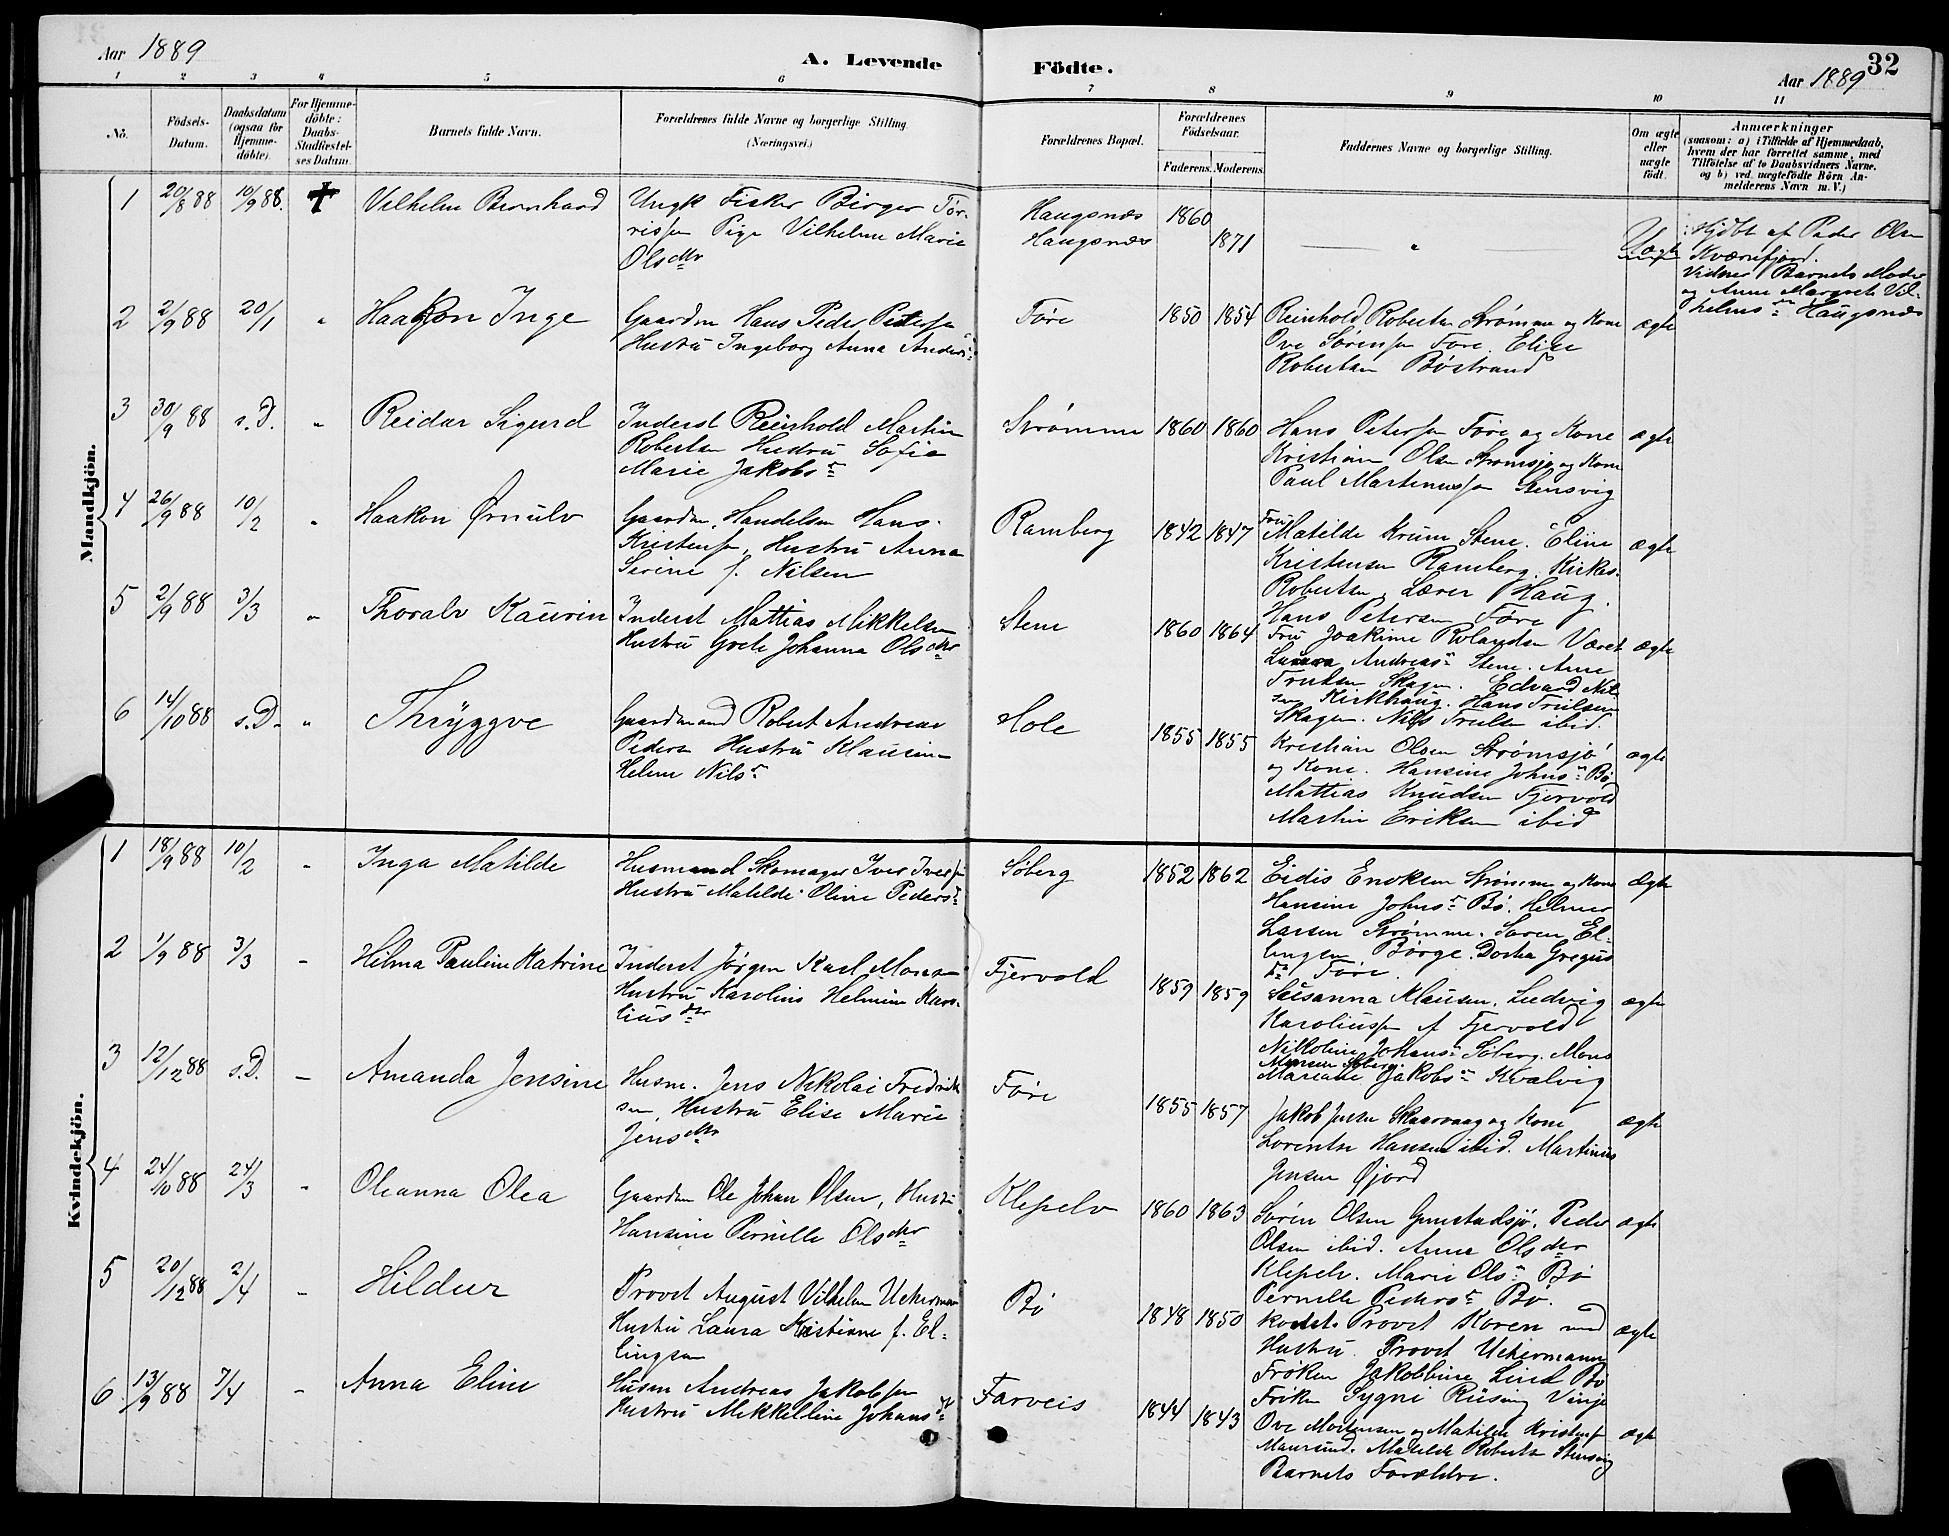 Aar 1889
A. Levende Födte.
32
Aar 1889
1 2 3 4 5 6 7 8 9 10 11
No.
Födsels-Datum.
Daabsdatum (ogsaa för Hjemme-döbte).
For Hjemme-döbte: Daabs-Stadfæstel-ses Datum.
Barnets fulde Navn.
Forældrenes fulde Navne og borgerlige Stilling. (Næringsvei.)
Forældrenes Bopæl.
Forældrenes Födselsaar.
Faderens. Moderens.
Faddernes Navne og borgerlige Stilling.
Om ægte eller uægte födt.
Anmærkninger
(saasom: a) i Tilfælde af Hjemmedaab, hvem der har forrettet samme, med Tilföielse af to Daabsvidners Navne, og b) ved uægtefödte Börn An-melderens Navn m. V.)
Mandkjön.
1 20/8 88 10/9 88. + Vilhelm Bernhard
Ungk Fisker Birger Tör-
rissen Pige Vilhelmine Marie
Olsdtr
Haugsnæs 1860
Haugsnæs 1871
— " — Uægte
Hjdbt af Peder Olsen
Kværnfjord.
Vidner Barnets Moder
og Anne Margrete Vil-
helmsdr Haugsnæs
2 2/9 88 20/1 " Haakon Inge
Gaardm Hans Peder Petersen
Hustru Ingeborg Anna Anders
Føre 1850 1854
Reinhold Robertsen Strømme og Kone
Ove Sörensen Føre. Elise
Robertsen Böstrand
ægte
3 30/9 88 s.D. " Reidar Sigurd
Inderst Reinhold Martin
Robertsen Hustru Sofie
Marie Jakobsdr
Strømme 1860 1860
Hans Petersen Føre og Kone
Kristian Olsen Strømsjø og Kone
Paul Martinussen Stensvig
ægte
4 26/9 88 10/2 " Haakon Ørnulv
Gaardm. Handelsm Hans
Kristensen, Hustru Anna
Serine f. Nilsen
Ramberg 1842 1847
Fru Matilde Krum Stene. Eline
Kristensen Ramberg. Kirkes.
Robertsen, Lærer Haug.
Hans Petersen Føre
ægte
5 2/9 88 3/3 " Thoralv Kaurin
Inderst Mattias Mikkelsen
Hustru Grete Johanna Olsdtr
Stene 1860 1864
Fru Joakime Rolandsen Været
Laura Andreasdr Stene. Anne
Trulsen Skagen. Edvard Nil
sen Kirkhaug. Hans Trulsen
Skagen. Nils Trulsen ibid
ægte
6 14/10 88 s.D. " Thryggve
Gaardmand Robert Andreas
Peders Hustru Klausine
Helene Nilsdr
Hole 1855 1855
Kristian Olsen Strømsjø
og Kone. Hansine Johnsdr Bø
Mattias Knudsen Fjervold
Martin Eriksen ibid
ægte
Kvindekjön.
1 18/9 88 10/2 " Inga Matilde
Husmand Skomager Iver Iversen
Hustru Matilde Oline Pedersd
Søberg 1852 1862
Eidis Enoksen Strømme og Kone
Hansine Johnsdr Bø. Helmer
Larsen Strømme. Søren El-
lingsen Børge. Dorthea Gregus
dr Føre.
Ægte
2 1/9 88 3/3 " Helma Pauline Katrine
Inderst Jörgen Karl Monsen
Hustru Karolius Helmine Karo-
liusdtr
Fjervold 1859 1859
Susanna Klausen, Ludvig
Karoliussen af Fjervold
Nikoline Johansdr Søberg. Mons
Monsen Søberg.
Mariane Jakobsdr Kvalvig
ægte
3 12/12 88 s.D. " Amanda Jensine
Husm. Jens Nikolai Fredrik
sen, Hustru Elise Marie
Jensdtr
Føre 1855 1857
Jakob Jensen Skaarvaag og Kone
Lorentse Hansen ibid. Martinus
Jensen Øjord
ægte
4 24/10 88 24/3 " Oleanna Olea
Gaardm Ole Johan Olsen, Hustru
Hansine Pernille Olsdtr
Klepelv 1860 1863
Sören Olsen Gunstadsjø. Peder
Olsen ibid. Anna Olsdtr
Klepelv. Marie Olsdr Bø
Pernille Pedersdr Bø.
ægte
5 20/12 88 2/4 " Hildur
Provst August Vilhelm Uckermann
Hustru Laura Kristiane f. El-
lingsen
Bø 1848 1850
Provst Koren med
Hustru. Provst Uckermann
Frøken Jakobbine Lind Bø
Frøken Sygni Rüsing Vinje
ægte
6 13/9 88 7/4 " Anna Eline
Husm Andreas Jakobsen
Hustru Mikkelline Johansd
Farveis 1844 1843
Ove Mortensen og Matilde Kristensen
Maursund. Matilde Roberts Stensvig
Barnets Forældre.
ægte